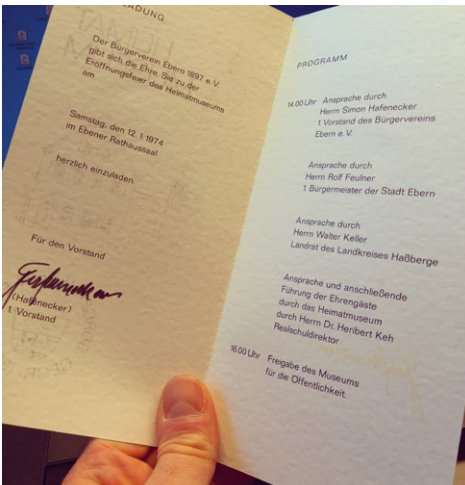 ADUNG
Der Bürgerverein Ebern 1897 e.V.
gibt sich die Ehre, Sie zu der
Eröffnungsfeier des Heimatmuseums
am
Samstag, den 12.1.1974
im Ebener Rathaussaal
herzlich einzuladen.
Für den Vorstand
(Hafenecker)
1. Vorstand
PROGRAMM
14.00 Uhr Ansprache durch
Herrn Simon Hafenecker
1. Vorstand des Bürgervereins
Ebern e.V.
Ansprache durch
Herrn Rolf Feulner
1. Bürgermeister der Stadt Ebern
Ansprache durch
Herrn Walter Keller
Landrat des Landkreises Haßberge
Ansprache und anschließende
Führung der Ehrengäste
durch das Heimatmuseum
durch Herrn Dr. Heribert Keh
Realschuldirektor
16.00 Uhr Freigabe des Museums
für die Öffentlichkeit.